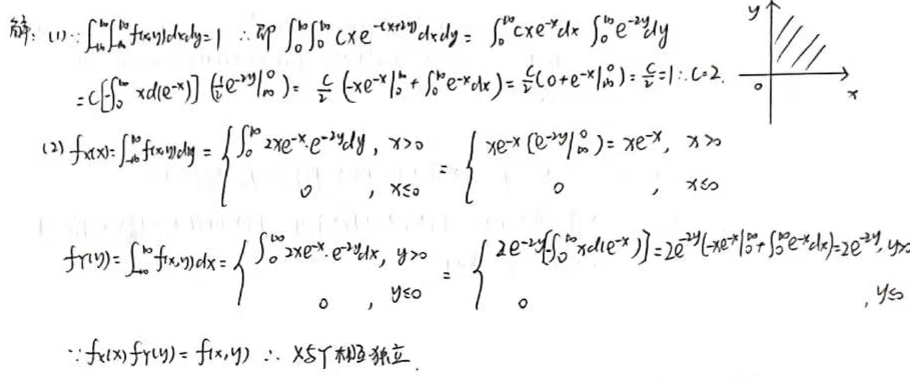 解: (1) ∵ ∫_{-∞}^{+∞}∫_{-∞}^{+∞} f(x,y)dxdy=1 ∴ 即 ∫_0^{+∞}∫_0^{+∞} cxe^{-(x+2y)}dxdy = ∫_0^{+∞} cxe^{-x}dx ∫_0^{+∞} e^{-2y}dy
= C[-∫_0^{+∞} xd(e^{-x})] (½e^{-2y}|_{∞}^0) = C/2 (-xe^{-x}|_0^{+∞} + ∫_0^{+∞} e^{-x}dx) = C/2 (0+e^{-x}|_{+∞}^0) = C/2 = 1 ∴ C=2.
y
0
x
(2) f_X(x) = ∫_{-∞}^{+∞} f(x,y)dy = { ∫_0^{+∞} 2xe^{-x}·e^{-2y}dy, x>0 = { xe^{-x}(e^{-2y}|_{∞}^0) = xe^{-x}, x>0
0 , x≤0 0 , x≤0
f_Y(y) = ∫_{-∞}^{+∞} f(x,y)dx = { ∫_0^{+∞} 2xe^{-x}·e^{-2y}dx, y>0 = { 2e^{-2y}[-∫_0^{+∞} xd(e^{-x})] = 2e^{-2y}(-xe^{-x}|_0^{+∞} + ∫_0^{+∞} e^{-x}dx) = 2e^{-2y}, y>0
0 , y≤0 0 , y≤0
∵ f_X(x) f_Y(y) = f(x,y) ∴ X与Y相互独立.